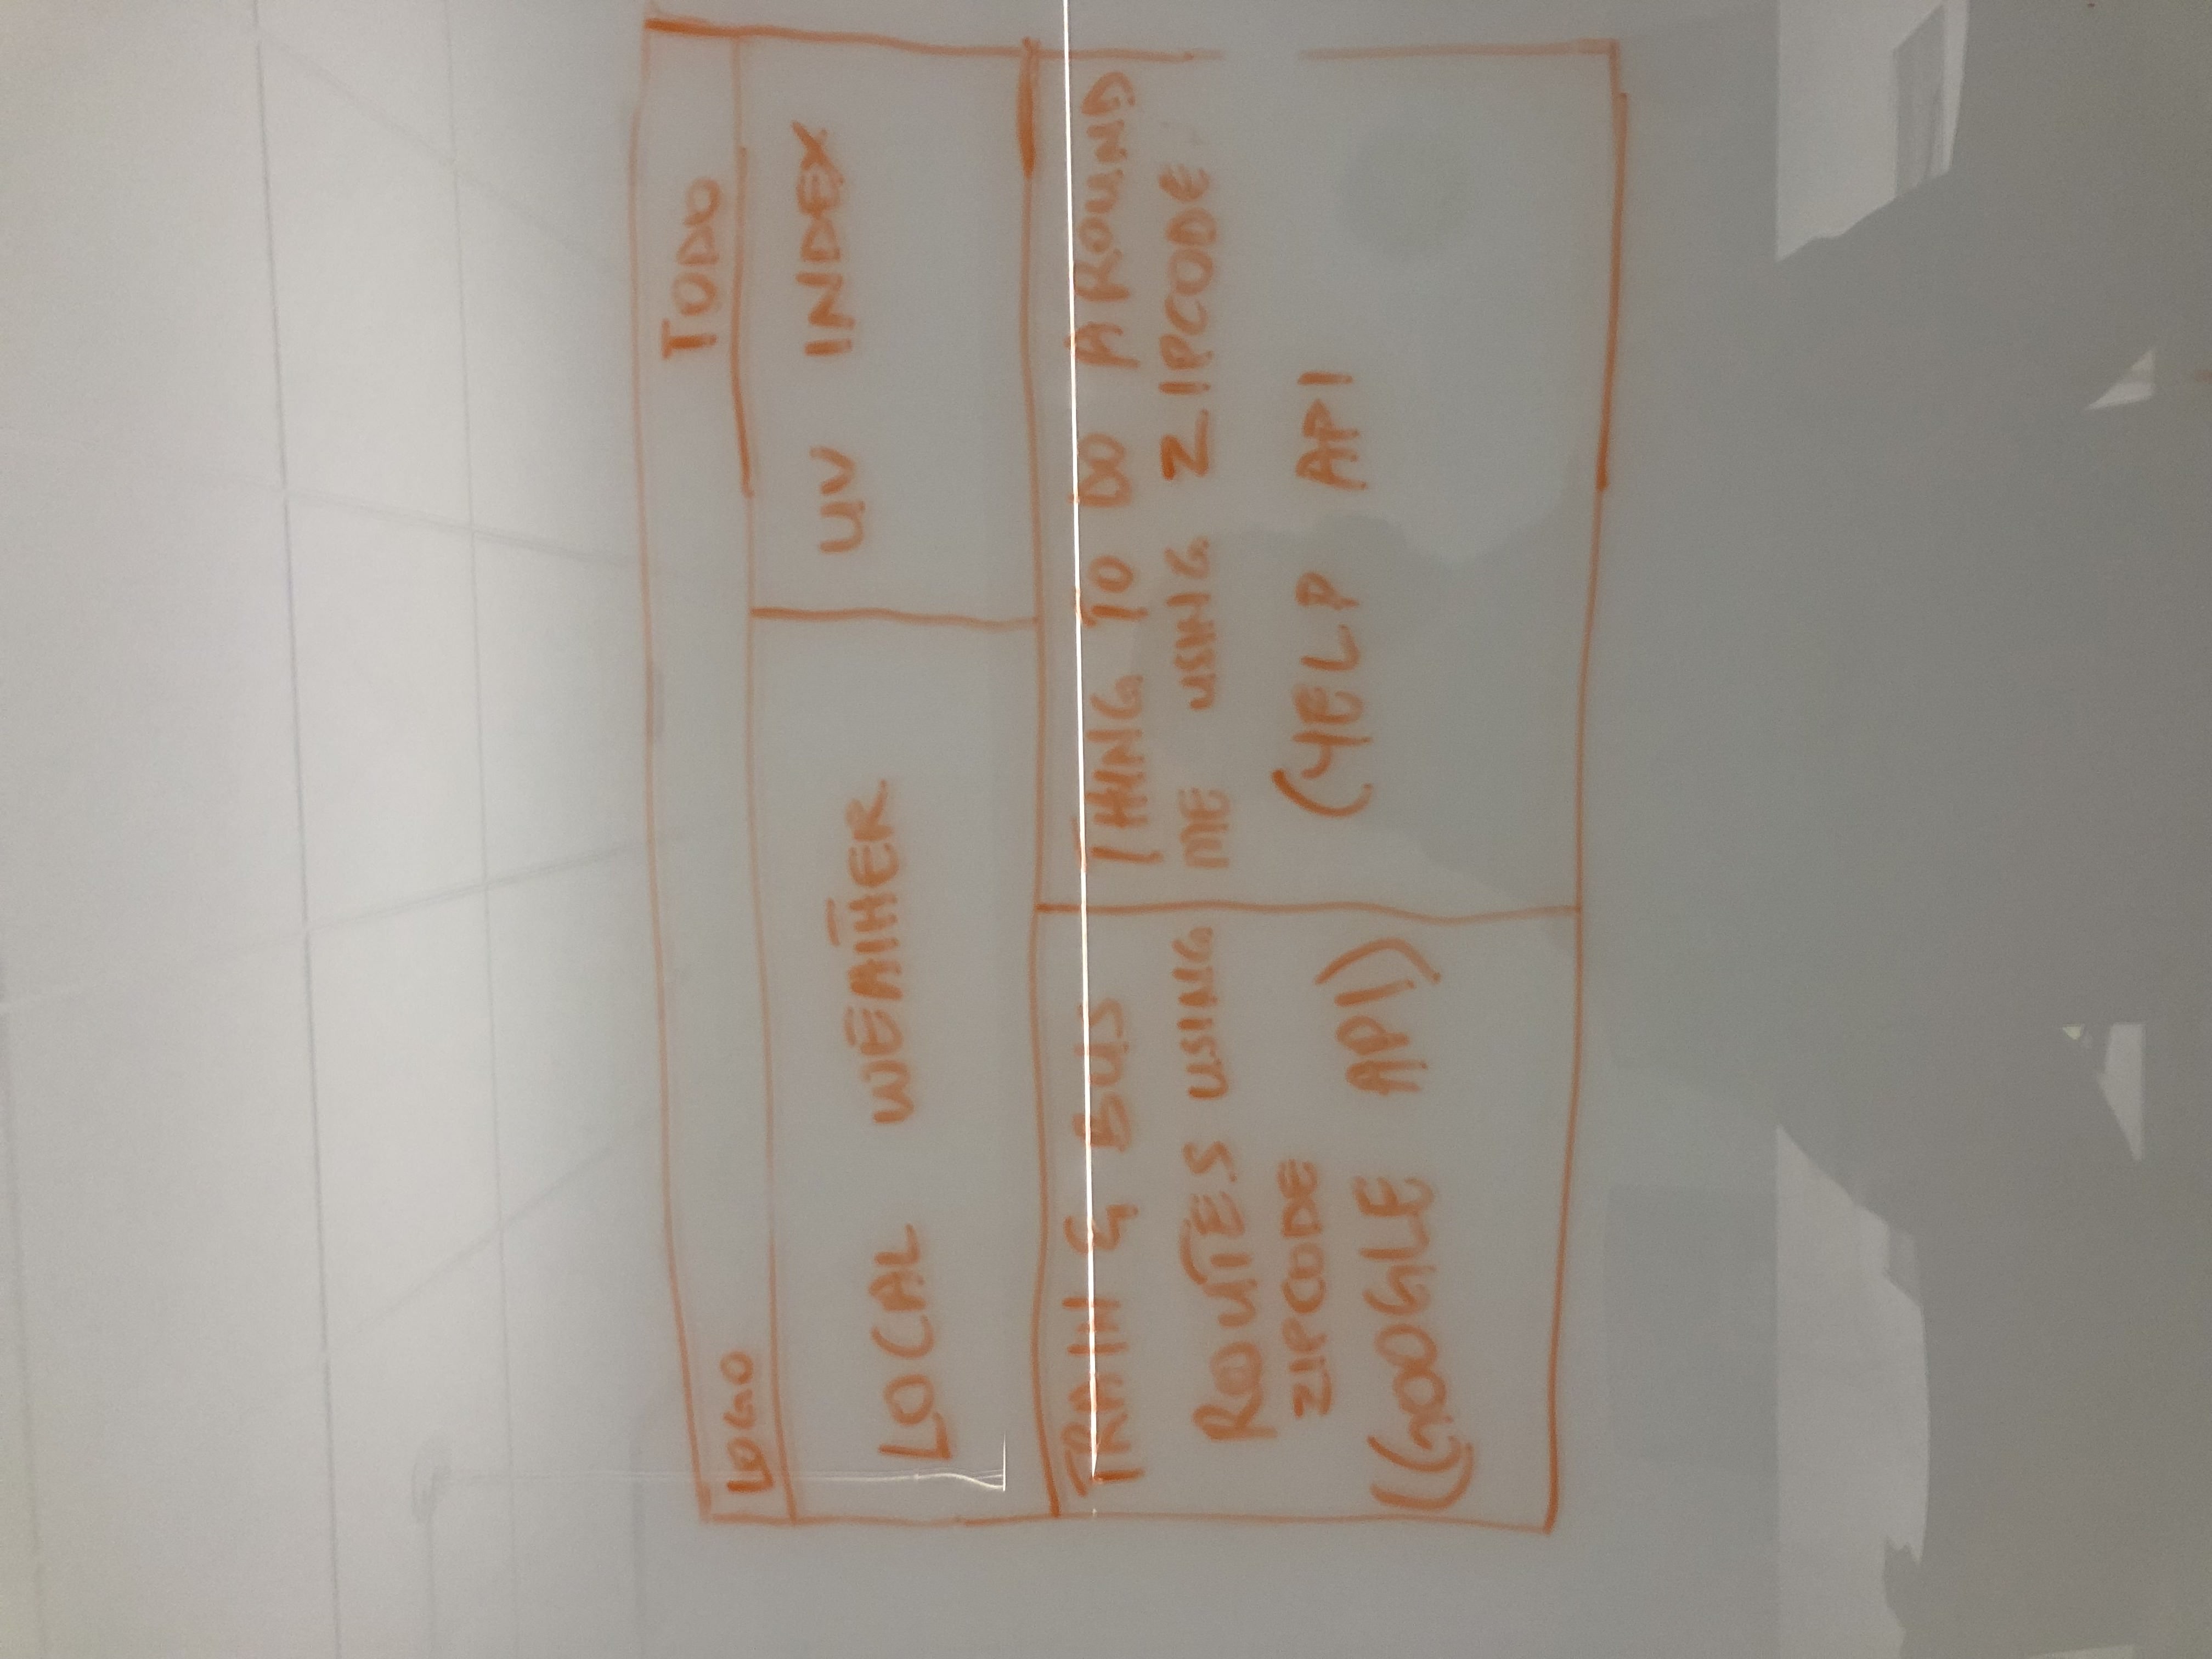 LOGO
TODO
LOCAL WEATHER
UV INDEX
TRAIN & BUS
ROUTES USING
ZIPCODE
(GOOGLE API)
THING TO DO AROUND
ME USING ZIPCODE
(YELP API